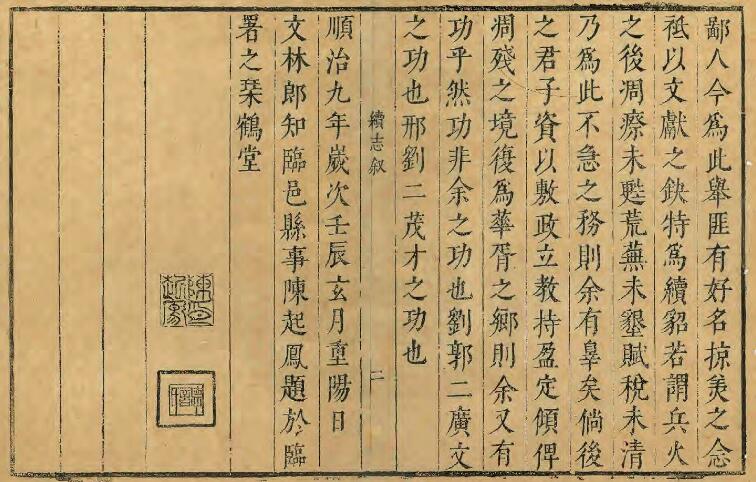 鄙人今爲此舉匪有好名掠美之念
祗以文獻之缺特爲續貂若謂兵火
之後凋瘵未甦荒蕪未墾賦稅未清
乃爲此不急之務則余有辠矣倘後
之君子資以敷政立教持盈定傾俾
凋殘之境復爲華胥之鄉則余又有
功乎然功非余之功也劉郭二廣文
之功也邢劉二茂才之功也
續志叙
二
順治九年嵗次壬辰玄月重陽日
文林郎知臨邑縣事陳起鳳題於臨
署之琹鶴堂
陳印
起鳳